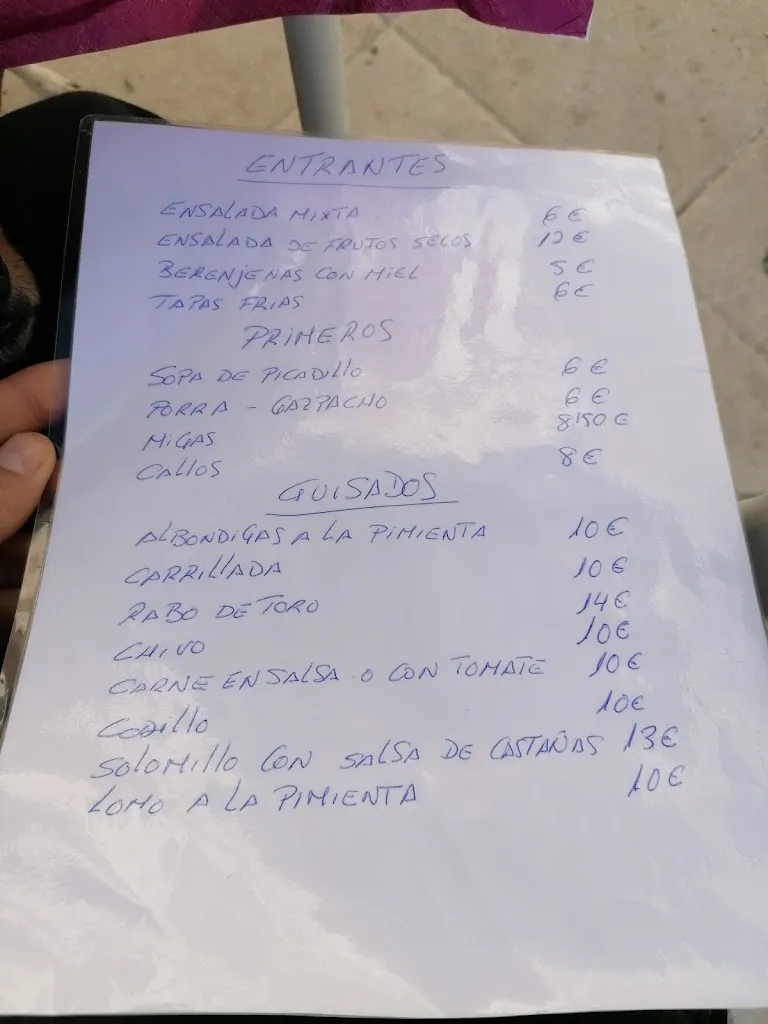 ENTRANTES
ENSALADA MIXTA 6€
ENSALADA DE FRUTOS SECOS 12€
BERENJENAS CON MIEL 5€
TAPAS FRIAS 6€
PRIMEROS
SOPA DE PICADILLO 6€
PORRA - GAZPACHO 6€
MIGAS 8'50€
CALLOS 8€
GUISADOS
ALBONDIGAS A LA PIMIENTA 10€
CARRILLADA 10€
RABO DE TORO 14€
CHIVO 10€
CARNE EN SALSA O CON TOMATE 10€
CODILLO 10€
SOLOMILLO CON SALSA DE CASTAÑAS 13€
LOMO A LA PIMIENTA 10€